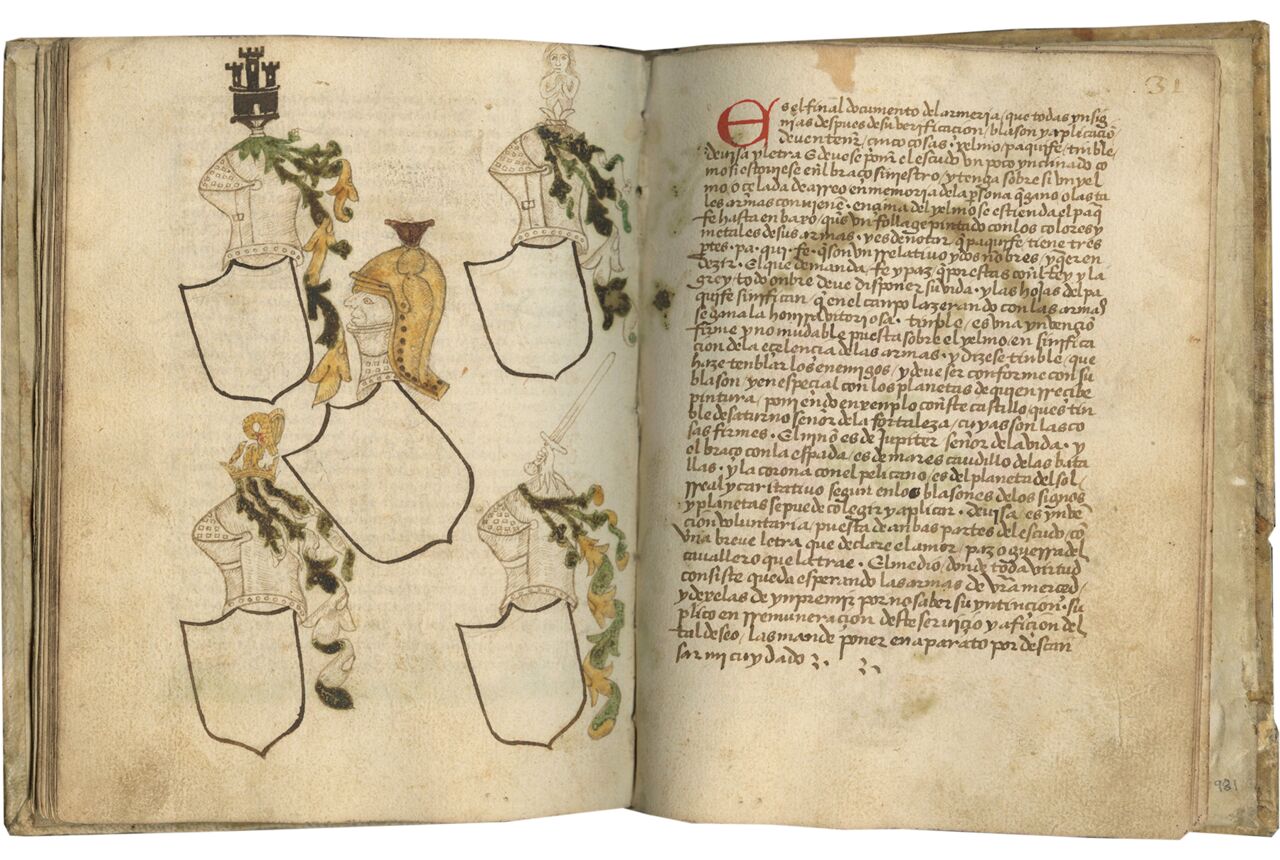 31
Es el final documento del armeria, que todas ynsig
nias despues de su verificacion, blason y aplicacio~
deven tener, cinco cosas. yelmo, paquife, tinble,
devisa y letra E devese poner el escudo un poco ynclinado co
mo si estoviese en el braço siniestro, y tenga sobre si un yel
mo o çelada de arreo en memoria de la psona q~ gano o las ta
les armas conviene~. ençima del yelmo se estienda el paq~
fe hasta en baxo, qu~s un follage pintado con los colores y
metales de sus armas. y es de notar q~ paquife tiene tres
ptes. pa. qui. fe. q~ son un rrelativo y dos no~bres, y q~eren
dezir. El que demanda, fe y paz q~ por estas con el rey y la
grey, todo onbre deve disponer su vida. y las hojas del pa
quife sinifican q~ en el campo lazerando con las armas
se gana la honrra vitoriosa. tinble, es una ynvençio~
firme y no mudable puesta sobre el yelmo, en sinifica
cion de la eçelencia de las armas. y dizese tinble, que
haze tenblar los enemigos, y deve ser conforme con su
blason, y en especial con los planetas de quien rreçibe
pintura, poniendo en yenplo con este castillo ques tin
ble de saturno señor de la fortaleza, cuyas son las co
sas firmes. El niño es de Jupiter señor de la vida. y
el braço con la espada, es de mares caudillo de las bata
llas. y la corona con el pelicano, es del planeta del sol,
rreal y caritativo segun en los blasones de los signos
y planetas se puede colegir y aplicar. devisa es ynve~
cion voluntaria, puesta de anbas partes del escudo, co~
una breve letra que declare el amor, paz o guerra del
cavallero que la trae. El medio, donde toda virtud
consiste queda esperando las armas de vra~ merced,
y dexelas de ynpremir por no saber su yntincion. su
plico en rremuneracion deste serviçio y afiçion del
tal deseo, las mande poner en aparato por descan
sar mi cuydado
981